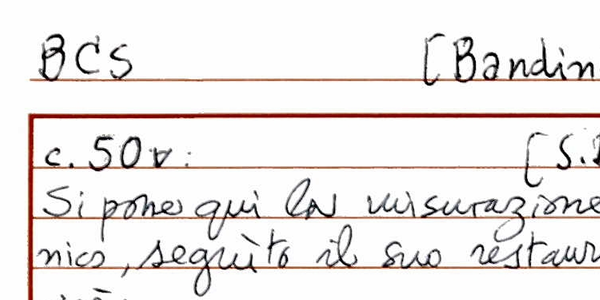 BCS [Bandin
c. 50v: [S.
Si pone qui la misurazione
nico, seguìto il suo restaur